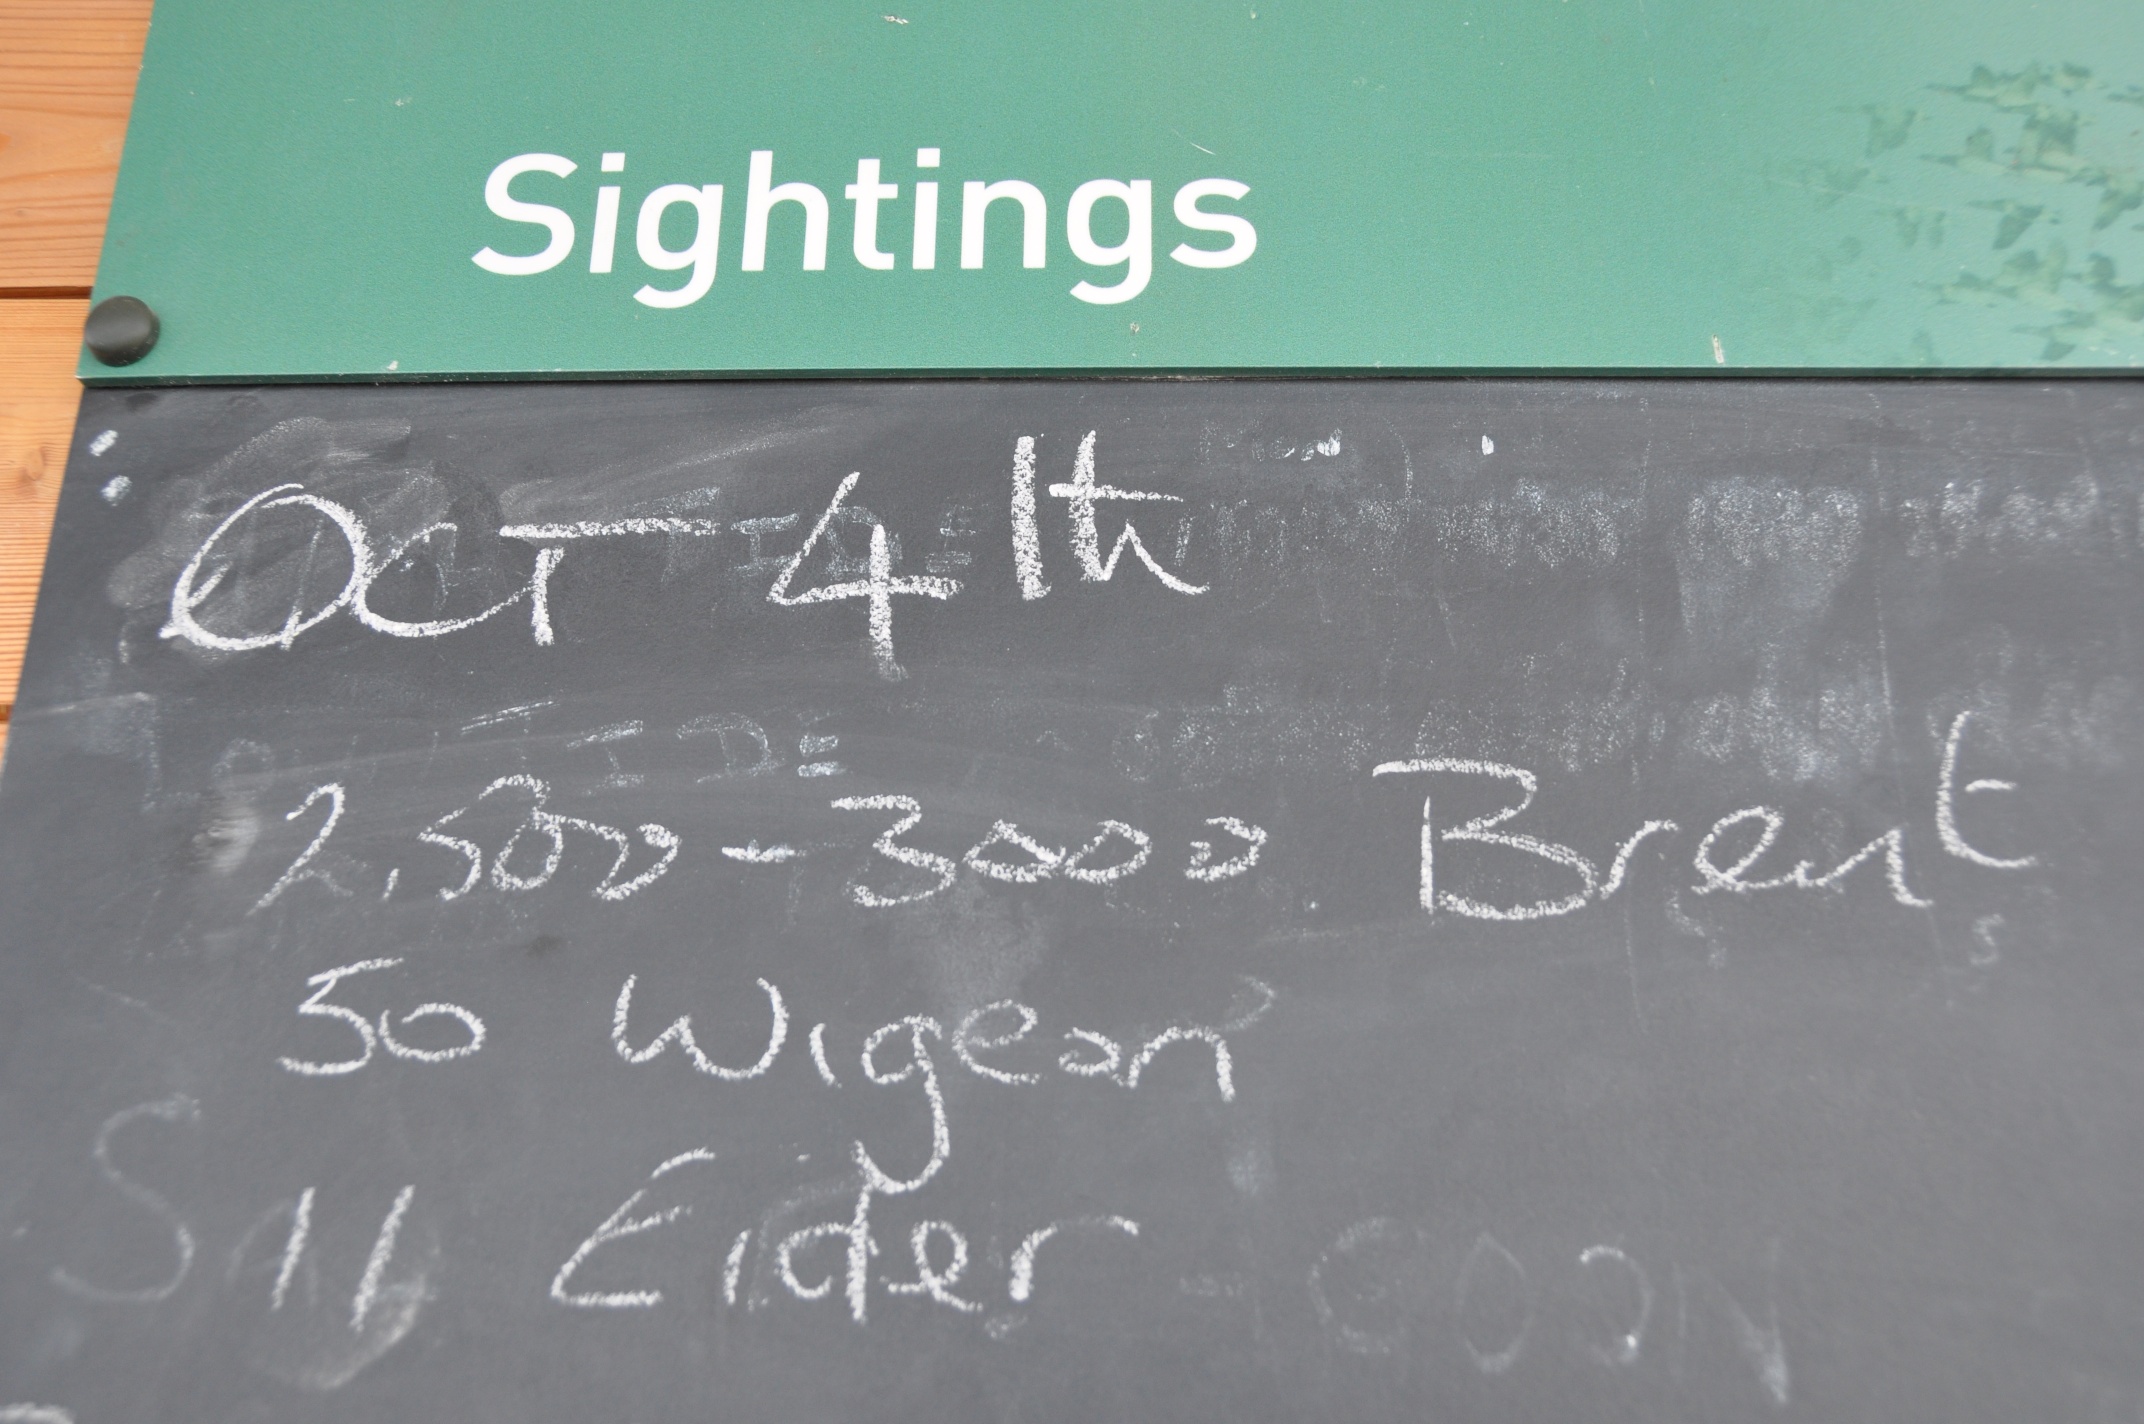 Sightings
Oct 4th
2,500 - 3000 Brent
50 Wigeon
11 Eider